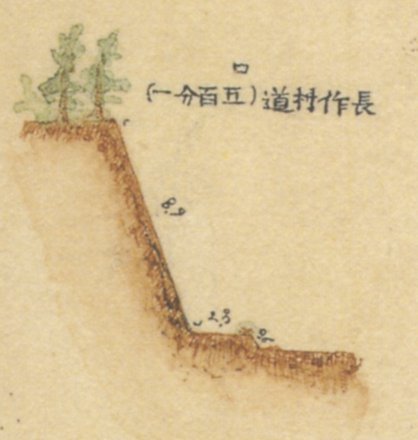 ロ
長作村道(五百分一)
8.9
2.3